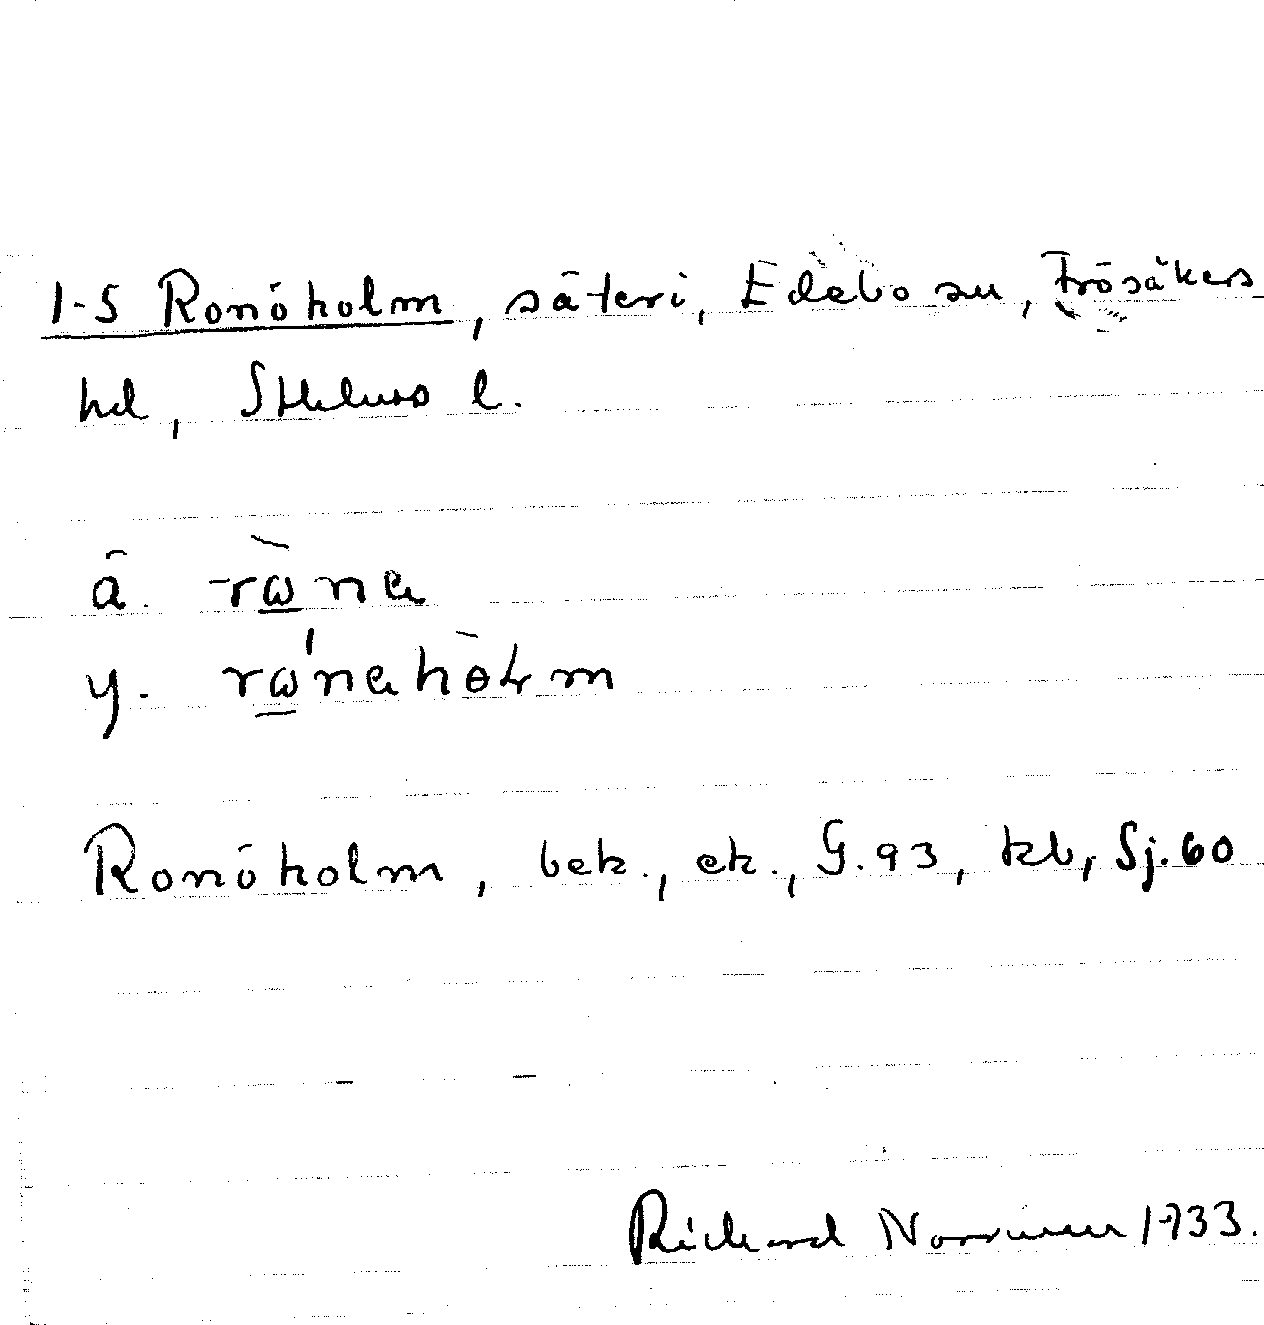 1-5 Ronöholm, säteri, Edebo sn, Frösåkers
hd, Sthlms l.
å. rὼna
y. rώnahòlm
Ronöholm, bek., ek., G.93, kb, Sj.60
Richard Norrman 1933.